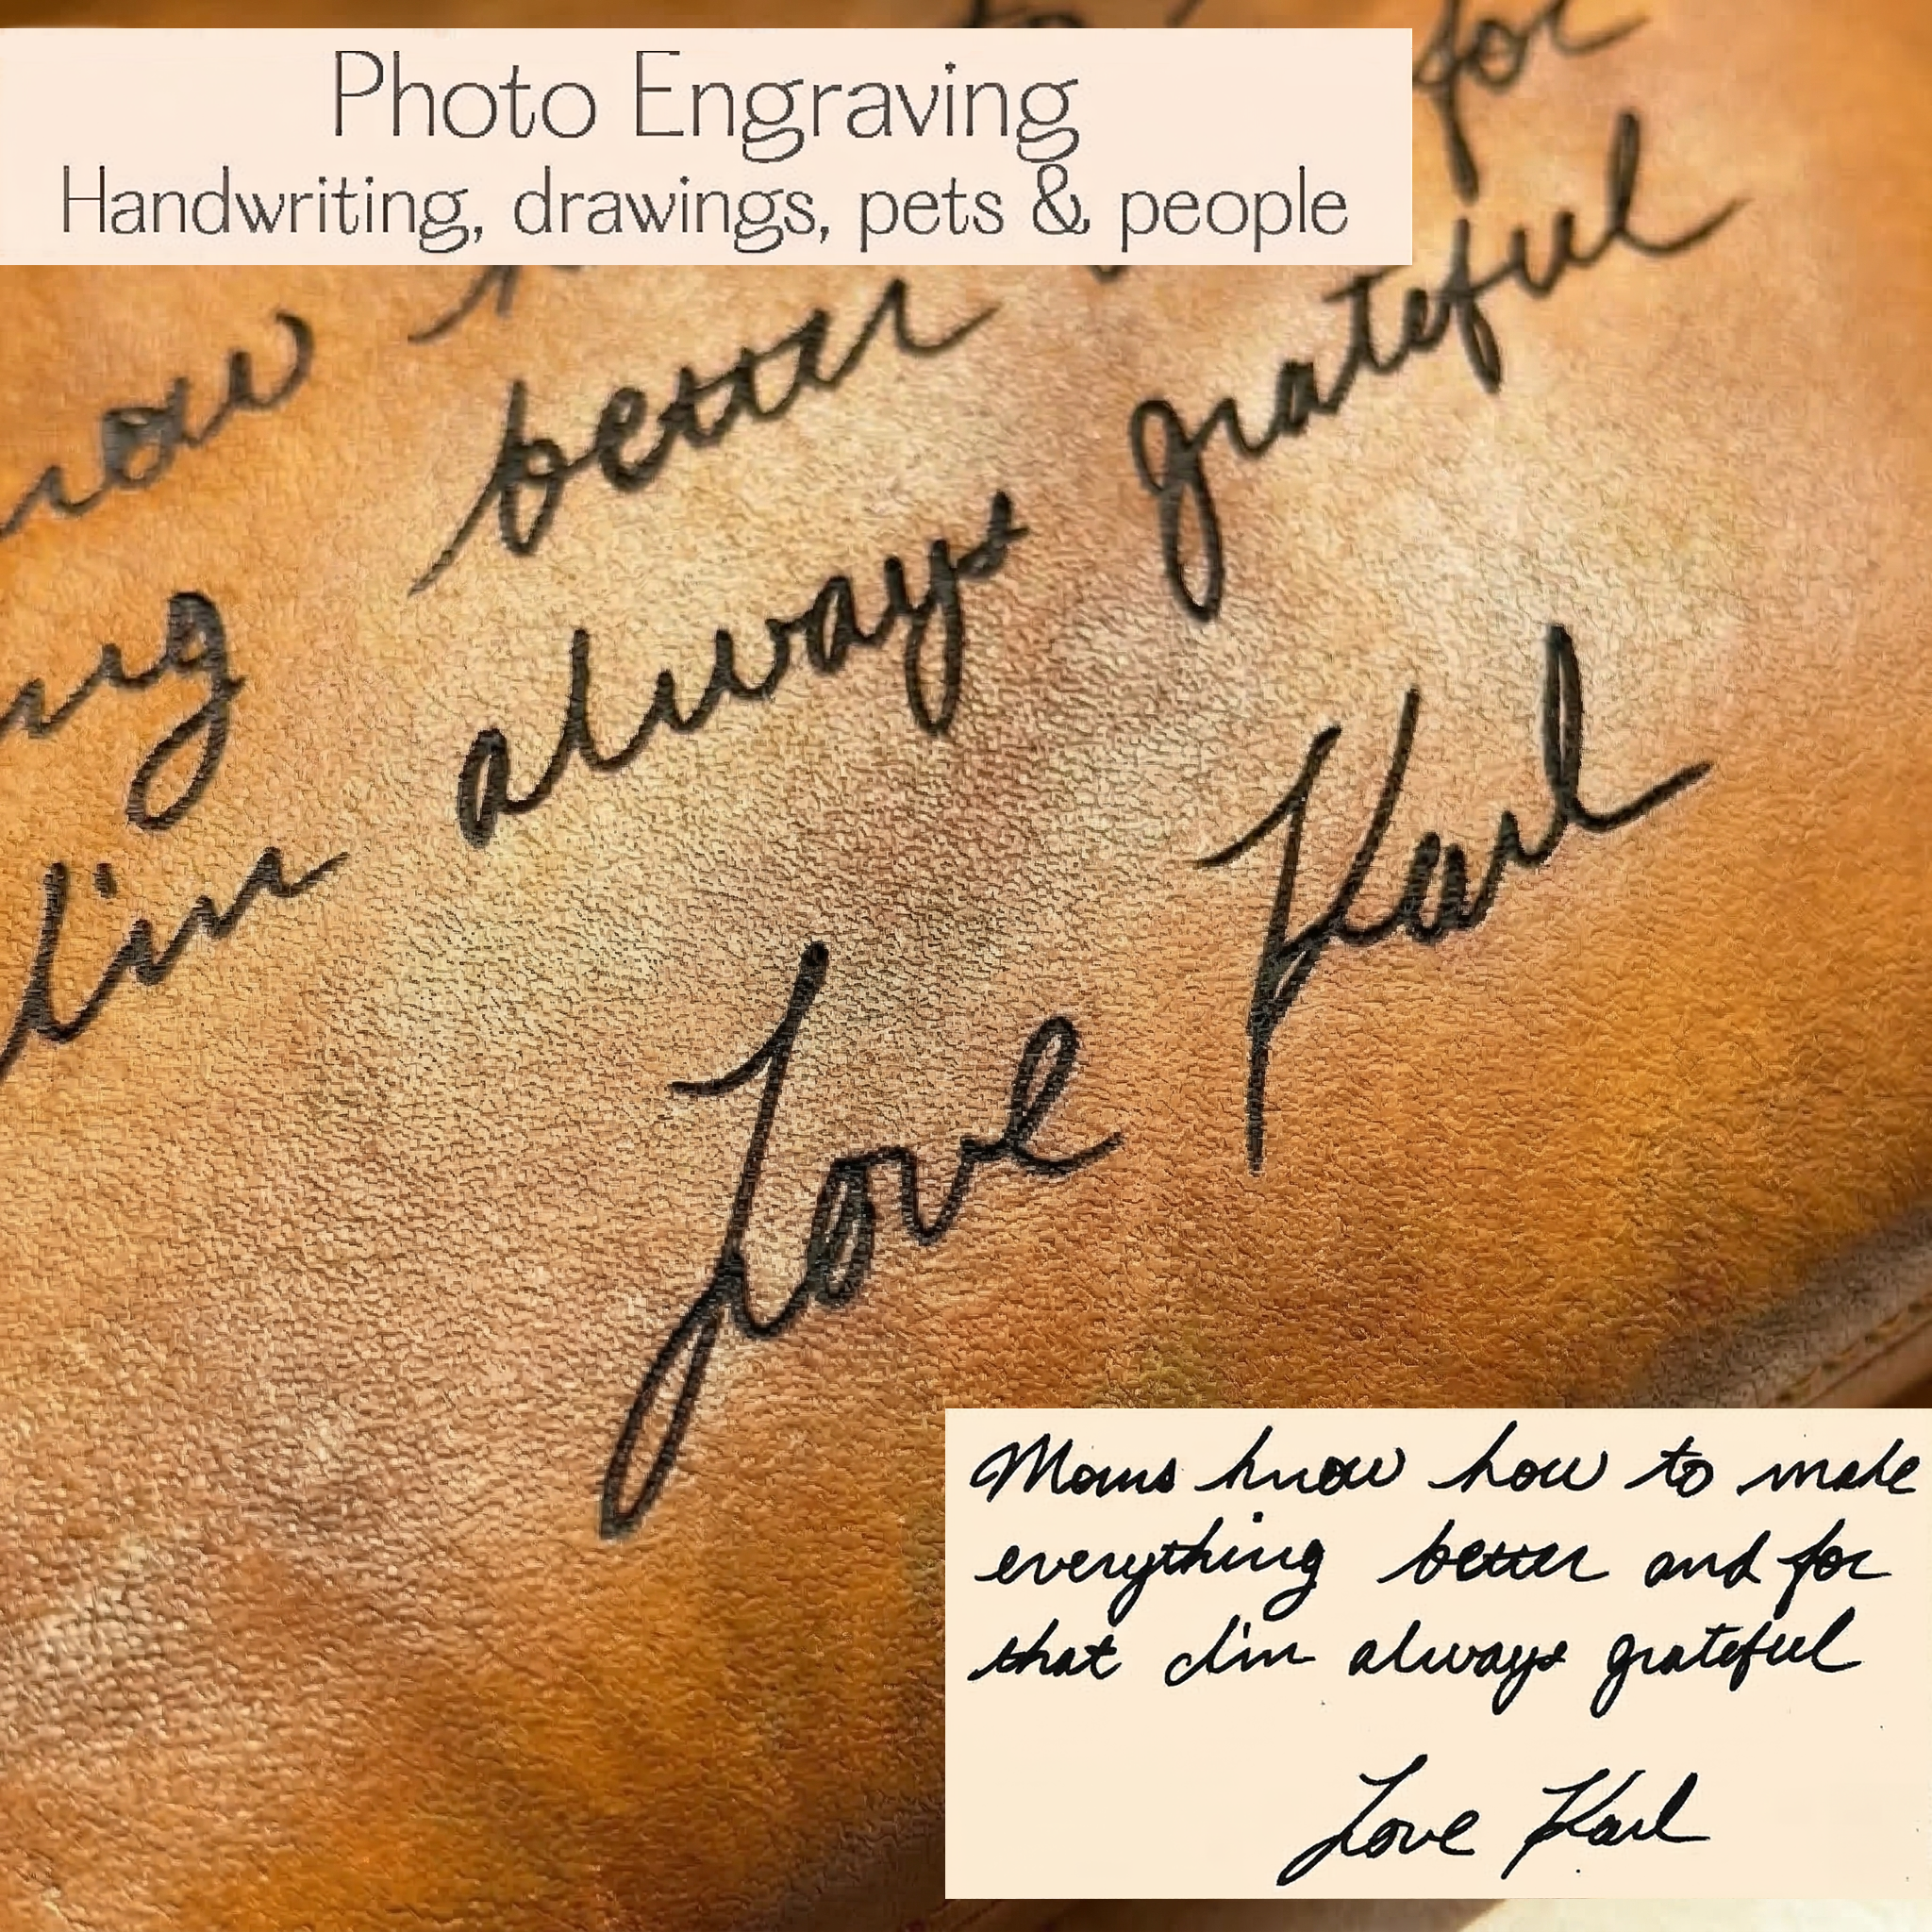 Photo Engraving
Handwriting, drawings, pets & people
to for
better grateful
always
I'm
Love Karl
Moms know how to make
everything better and for
that I'm always grateful
Love Karl